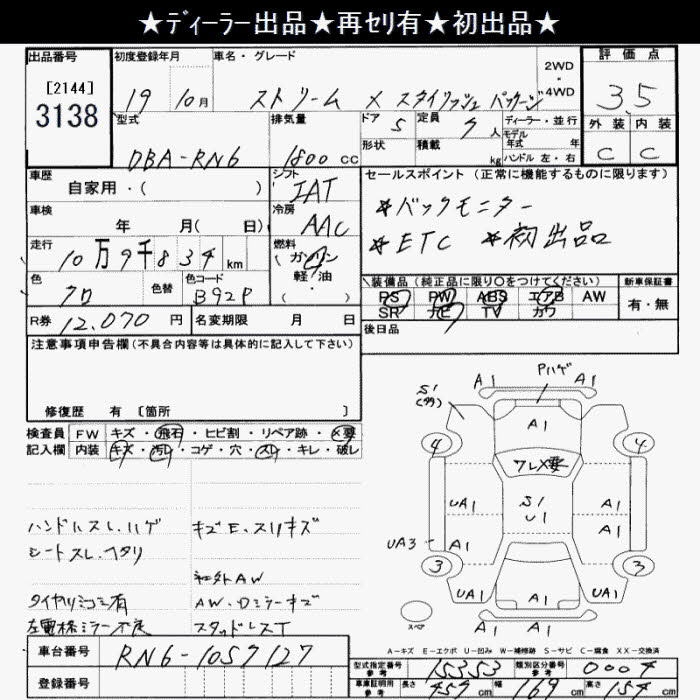 ★ﾃﾞｨｰﾗｰ出品★再ｾﾘ有★初出品★
出品番号
[2144]
3138
初度登録年月
19年 10月
車名・グレード
ストリーム X スタイリッシュ パッケージ
2WD
・
4WD
評価点
3.5
外装 内装
C C
型式
DBA-RN6
排気量
1800 cc
ドア 5
形状
定員 7 人
積載 kg
ディーラー・並行
モデル年式 年式
ハンドル 左・右
車歴
自家用・( )
シフト
IAT
冷房
AAC
車検
年 月( 日)
走行
10万9千834 km
燃料
ガソリン
軽・油
( )
色
クロ
色替
色コード
B92P
R券 12,070 円
名変期限 月 日
セールスポイント (正常に機能するものに限ります)
*バックモニター
*ETC *初出品
装備品 (純正品に限り○をつけてください)
PS PW ABS エアB AW
SR ナビ TV カワ
新車保証書
有・無
後日品
注意事項申告欄(不具合内容等は具体的に記入して下さい)
修復歴 有 [箇所 ]
検査員 FW キズ・飛石・ヒビ割・リペア跡・X要
記入欄 内装 キズ・汚れ・コゲ・穴・スレ・キレ・破レ
ハンドルスレ、ハゲ
シートスレ、ヘタリ
タイヤツミコミ有
左電格ミラー不良
キズE、スリキズ
社外AW
AW、Dミラーキズ
スタッドレスT
Pハゲ
S1
A1 A1
A1
4 4
ワレX要
UA1 S1 A1
U1
UA3 A1 A1
3 3
UA1 A1 UA1
A1 A1
スペア
A－キズ E－エクボ U－凹み W－補修跡 S－サビ C－腐食 XX－交換済
車台番号 RN6-1057127
登録番号
型式指定番号 参考 15353
類別区分番号 参考 0004
車庫証明用 参考 長さ 457 cm 幅 169 cm 高さ 154 cm